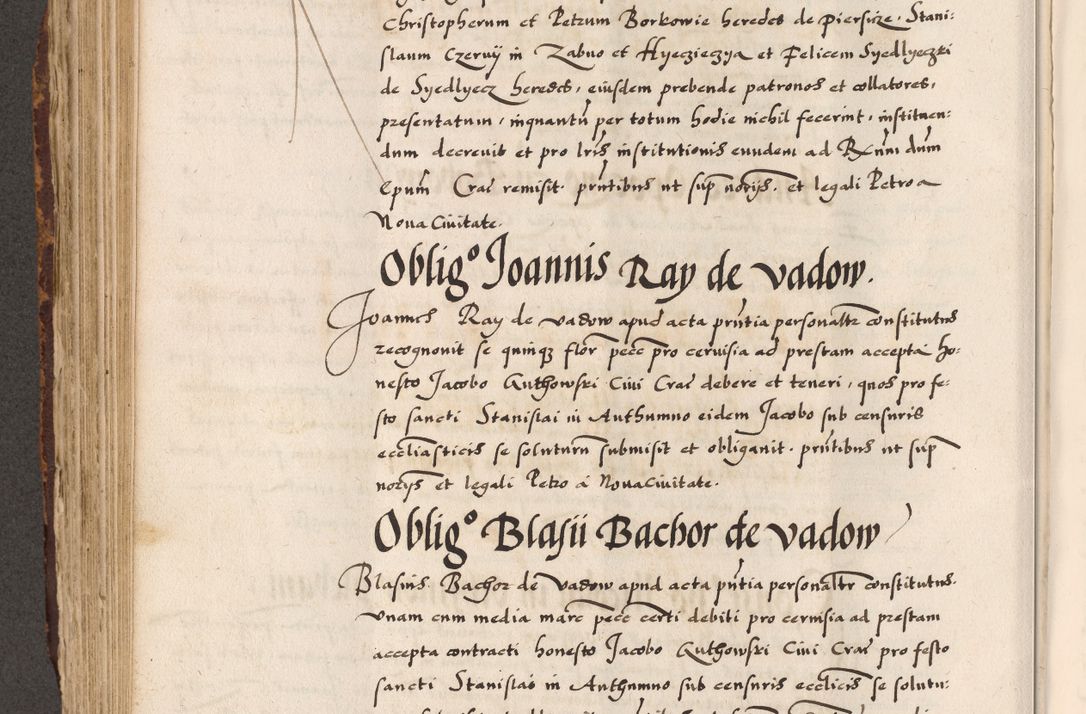 Christopherum et Petrum Borkowie heredes de Piersicze, Stani:
slaum Czeruÿ in Zabno et Hyeczieczya et Felicem Syedlyeczki
de Syedlyecz heredes, eiusdem prebende patronos et collatores,
presentatum, inquantu per totum hodie nichil fecerint, instituen:
dum decreuit et pro lris institutionis euudem ad Rnm dum
Epum Crac remisit. pntibus ut sup norijs. et legali Petro a
Noua Ciuitate.
Oblig° Joannis Ray de vadow.
Joannes Ray de vadow apud acta pntia personaltr constitutus
recognouit se quinq flor pecc pro ceruisia ad prestam accepta ho:
nesto Jacobo Kuthowski Ciui Crac debere et teneri, quos pro fe:
sto sancti Stanislai in Authumno eidem Jacobo sub censuris
eccliasticis se soluturu submisit et obligauit. pntibus ut sup
norijs et legali Petro a Noua Ciuitate.
Oblig° Blasii Bachor de vadow
Blasius Bachor de Vadow apud acta pntia personaltr constitutus.
vnam cum media marc pecc certi debiti pro ceruisia ad prestam
accepta contracti honesto Jacobo Kuthowski Ciui Crac pro festo
sancti Stanislai in Authumno sub censuris ecclicis se solutu: